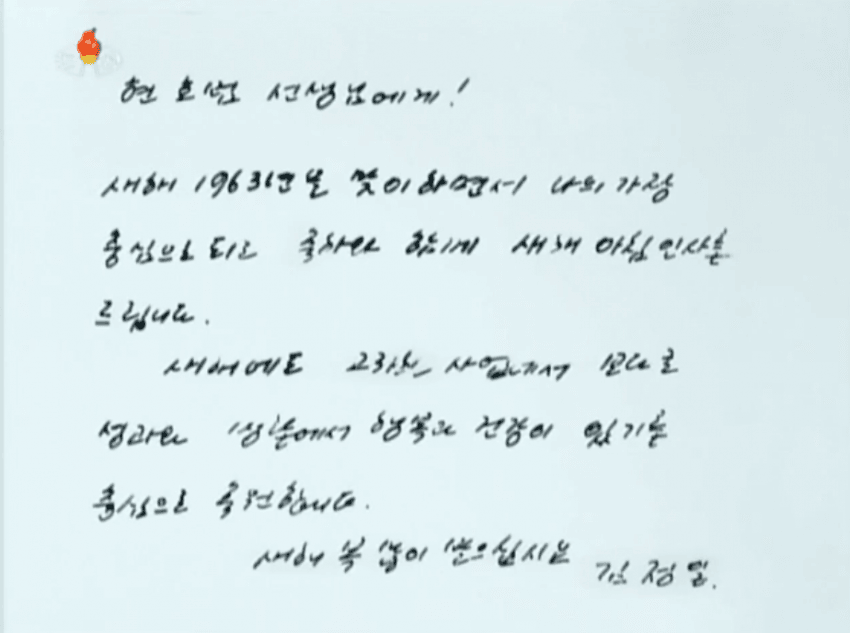 현호범 선생님에게!
새해 1963년을 맞이하면서 나의 가장
충심으로 되는 축하와 함께 새해 아침 인사를
드립니다.
새해에도 교학 사업에서 보다 큰
성과와 생활에서 행복과 건강이 있기를
충심으로 축원합니다.
새해 복 많이 받으십시오
김정일.